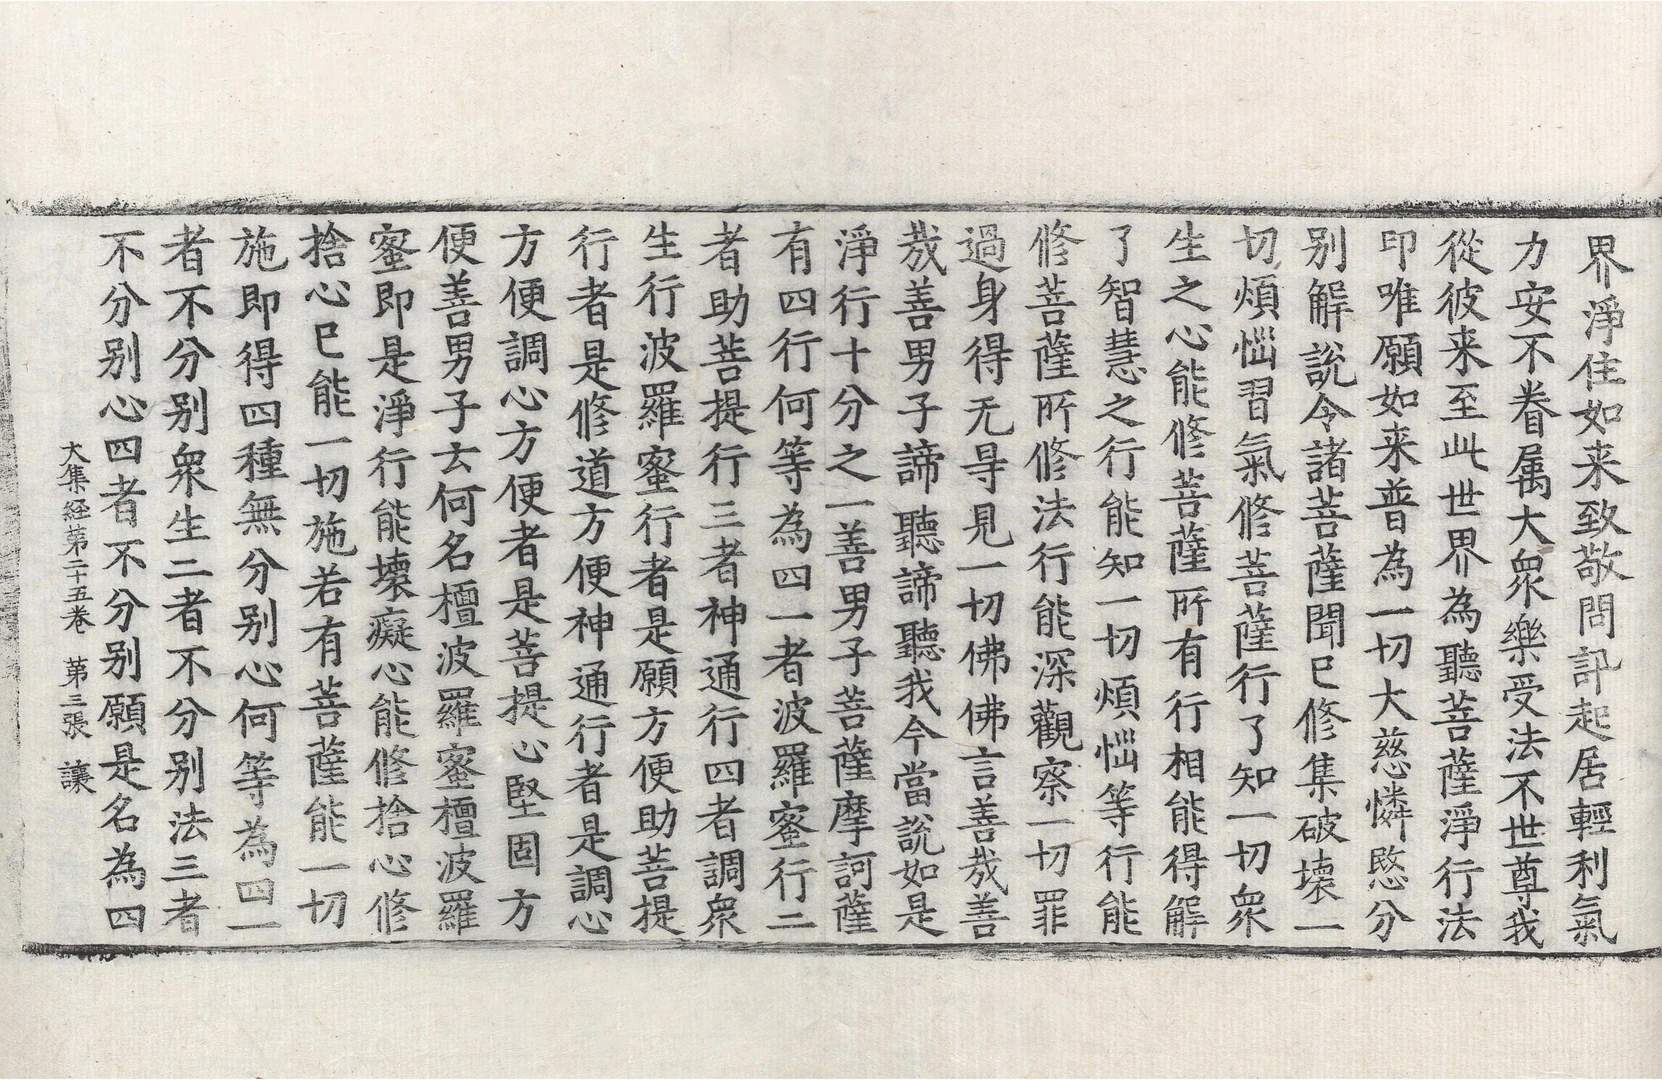 界淨住如来致敬問訊起居輕利氣
力安不眷属大衆樂受法不世尊我
從彼来至此世界為聽菩薩淨行法
印唯願如来普為一切大慈憐愍分
别解說令諸菩薩聞已修集破壞一
切煩惱習氣修菩薩行了知一切衆
生之心能修菩薩所有行相能得解
了智慧之行能知一切煩惱等行能
修菩薩所修法行能深觀察一切罪
過身得无㝵見一切佛佛言善㢤善
㢤善男子諦聽諦聽我今當說如是
淨行十分之一善男子菩薩摩訶薩
有四行何等為四一者波羅蜜行二
者助菩提行三者神通行四者調衆
生行波羅蜜行者是願方便助菩提
行者是修道方便神通行者是調心
方便調心方便者是菩提心堅固方
便善男子云何名檀波羅蜜檀波羅
蜜即是淨行能壞癡心能修捨心修
捨心已能一切施若有菩薩能一切
施即得四種無分别心何等為四一
者不分别衆生二者不分别法三者
不分别心四者不分别願是名為四
大集経第二十五卷　第三張　讓